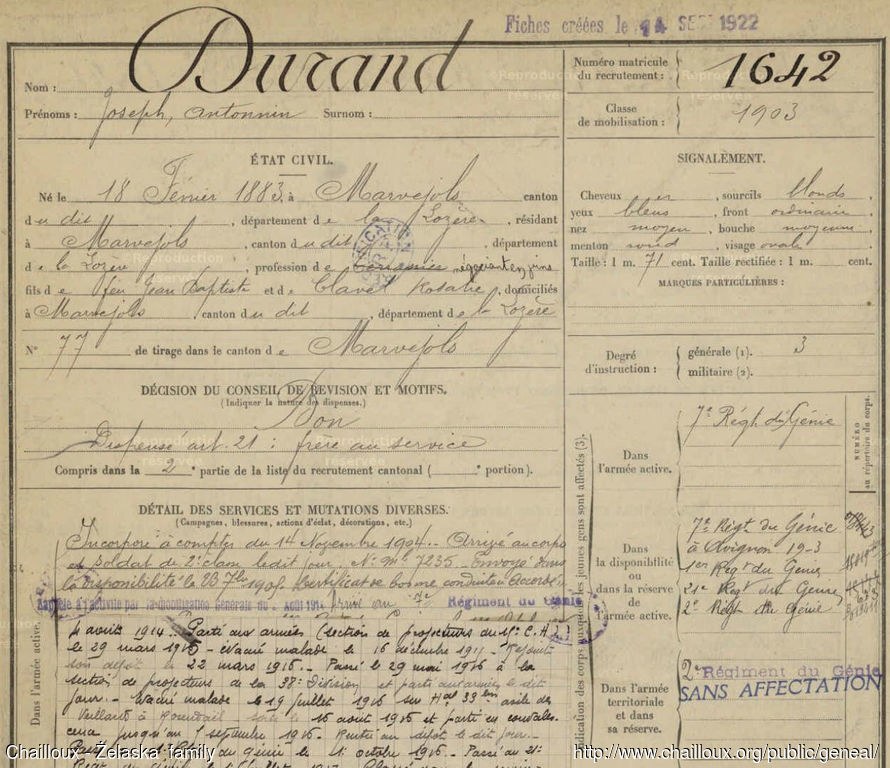 Fiches créées le 14 SEPT 1922
Nom : Durand
Prénoms : Joseph, Antonnin Surnom :
Numéro matricule du recrutement : 1642
Classe de mobilisation : 1903
ÉTAT CIVIL.
Né le 18 Février 1883, à Marvejols canton
du dit, département de la Lozère, résidant
à Marvejols, canton du dit, département
de la Lozère, profession de négociant en vins
fils de feu Jean Baptiste et de Clavel Rosalie, domiciliés
à Marvejols, canton du dit, département de la Lozère
N° 77 de tirage dans le canton de Marvejols
SIGNALEMENT.
Cheveux, sourcils blonds
yeux bleus, front ordinaire
nez moyen, bouche moyenne
menton rond, visage ovale
Taille : 1 m. 71 cent. Taille rectifiée : 1 m. cent.
MARQUES PARTICULIÈRES :
Degré d'instruction :
générale (1). 3
militaire (2).
DÉCISION DU CONSEIL DE REVISION ET MOTIFS.
(Indiquer la nature des dispenses.)
Bon
Dispensé art. 21 : frère au service
Compris dans la 2e partie de la liste du recrutement cantonal ( e portion).
DÉTAIL DES SERVICES ET MUTATIONS DIVERSES.
(Campagnes, blessures, actions d'éclat, décorations, etc.)
Incorporé à compter du 14 Novembre 1904. Arrivé au corps
et soldat de 2e classe le dit jour. No mle 7235. Envoyé dans
la disponibilité le 23 7bre 1905. Certificat de bonne conduite Accordé
Rappelé à l'activité par la mobilisation Générale du Août 1914 arrivé au 7e Régiment du Génie
4 août 1914. Parti aux armées (section de projecteurs du
le 29 mars 1915. Evacué malade le 16 décembre Rejoint
son dépôt le 22 mars 1916. Passé le 29 mai 1916 à la
section de projecteurs de la 38e Division et parti aux armées le dit
jour. Evacué malade le 19 juillet 1916 sur asile des
Vieillards à le 16 août 1916 et parti en convales
cence jusqu'au 7 septembre 1916. Rentré au dépôt le dit jour.
du génie le 11 octobre 1916. Passé au 21e
Dans l'armée active.
Indication des corps auxquels les jeunes gens sont affectés (3).
Dans l'armée active.
7e Régt du Génie
NUMÉRO au répertoire du corps.
Dans la disponibilité ou dans la réserve de l'armée active.
7e Régt du Génie
à Avignon 19-3
1er Régt du Génie
21e Régt du Génie
2e Régt du Génie
Dans l'armée territoriale et dans sa réserve.
2e Régiment du Génie
SANS AFFECTATION
Chailloux - Żelaska family
http://www.chailloux.org/public/geneal/